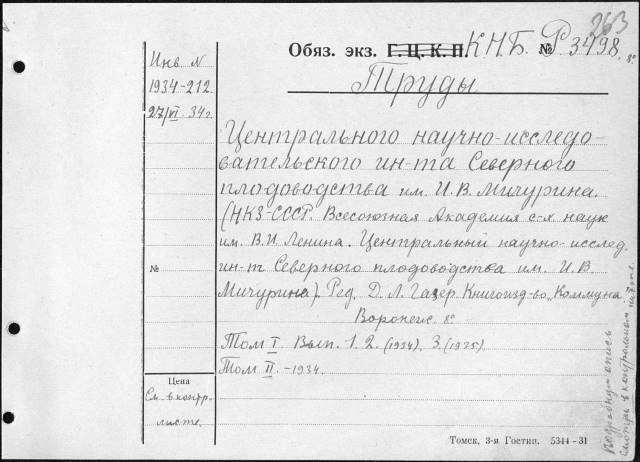 263
Обяз. экз. Г. Ц. К. П. К.Н.Б. № Р 3498. 8º
Труды
Инв. N
1934-212
27/VI 34 г.
Центрального научно-исследо-
вательского ин-та Северного
плодоводства им. И. В. Мичурина.
(НКЗ-СССР. Всесоюзная Академия с-х наук
им. В. И. Ленина. Центральный научно-исслед.
ин-т Северного плодоводства им. И. В.
Мичурина). Ред. Д. Л. Книгоизд-во "Коммуна
Воронеж. 8º
Том I. Вып. 1. 2. (1934). 3. (1935).
Том II. -1934.
№
Цена
См. в контр.
листе.
Подробную опись
смотри в контрольном
Томск, 3-я Гостип. 5344-31